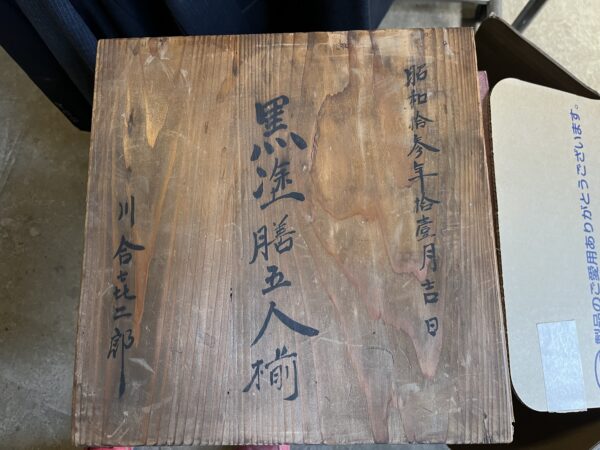 昭和拾参年拾壹月吉日
黒塗膳五人揃
川合㐂二郎
製品のご愛用ありがとうございます。